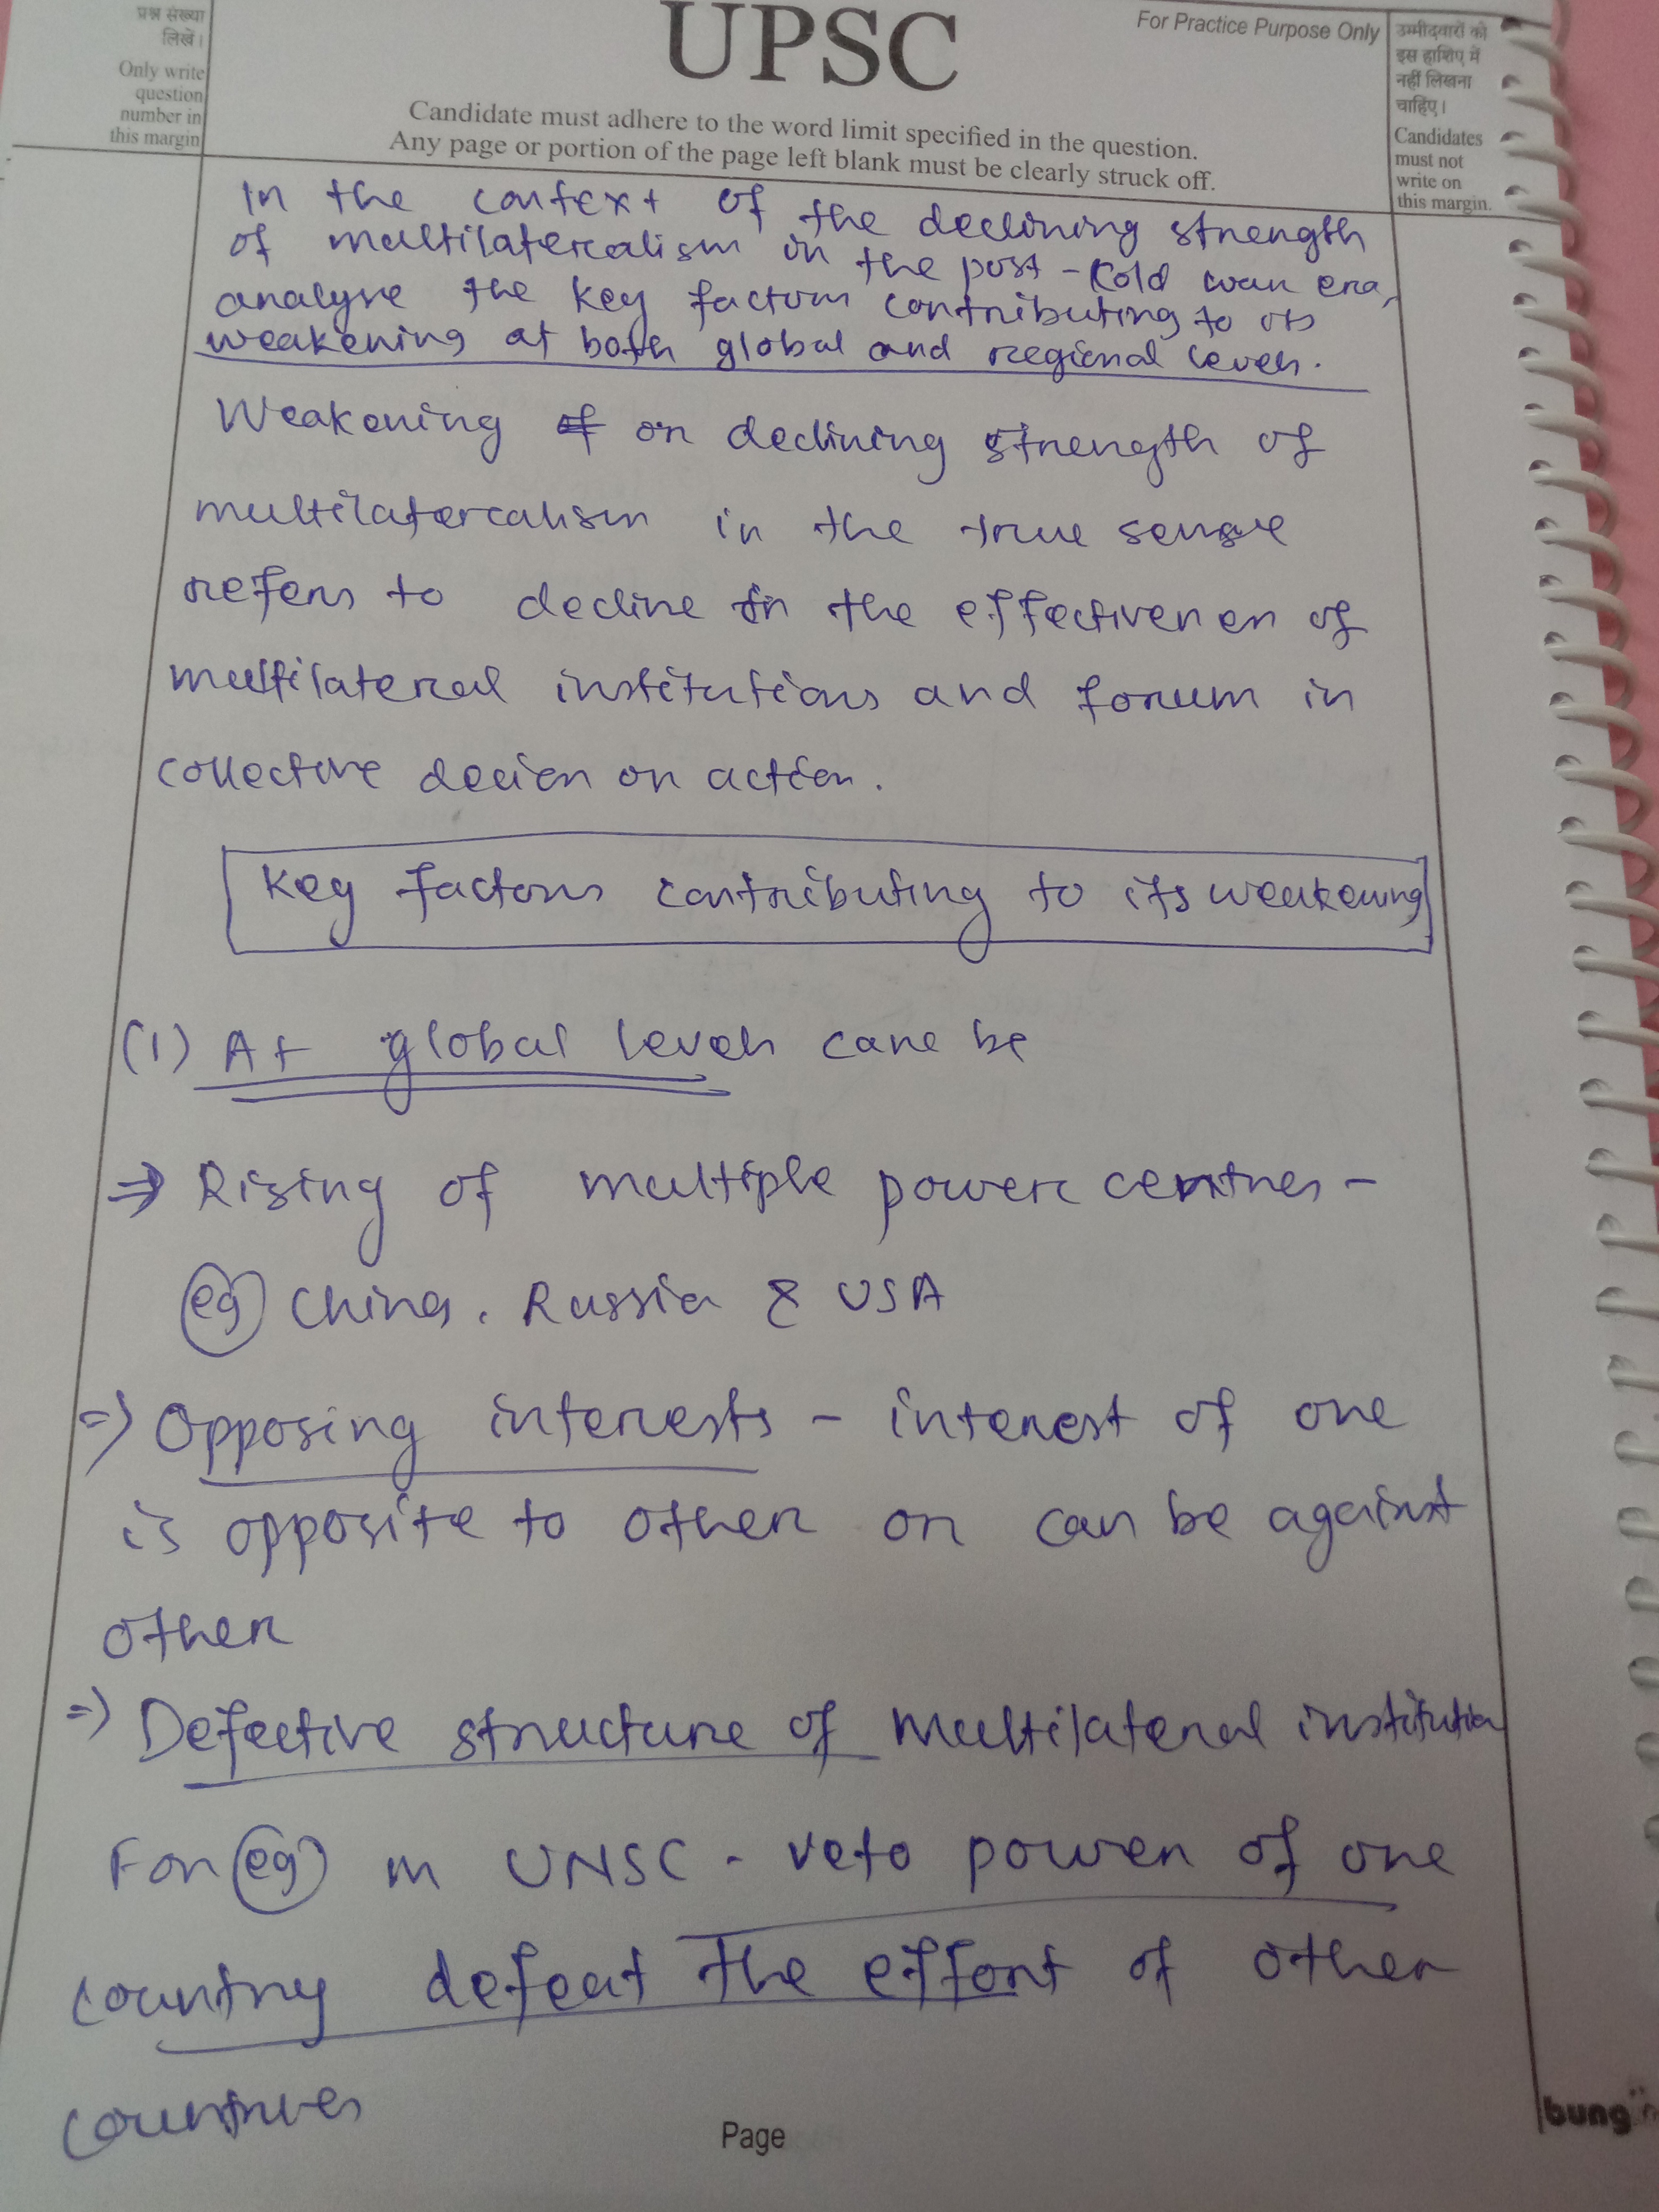 प्रश्न संख्या
लिखें।
Only write
question
number in
this margin
UPSC
For Practice Purpose Only
Candidate must adhere to the word limit specified in the question.
Any page or portion of the page left blank must be clearly struck off.
उम्मीदवारों को
इस हाशिए में
नहीं लिखना
चाहिए।
Candidates
must not
write on
this margin.
In the context of the declining strength
of multilateralism in the post-Cold war era,
analyse the key factors contributing to its
weakening at both global and regional levels.
Weakening or declining strength of
multilateralism in the true sense
refers to decline in the effectiveness of
multilateral institutions and forum in
collective decision or action.
Key factors contributing to its weakening
(1) At global levels cane be
⇒ Rising of multiple power centres -
eg China, Russia & USA
⇒ Opposing interests - interest of one
is opposite to other or can be against
other
⇒ Defective structure of multilateral institution
For eg in UNSC - veto power of one
country defeat the effort of other
countries
Page
bung